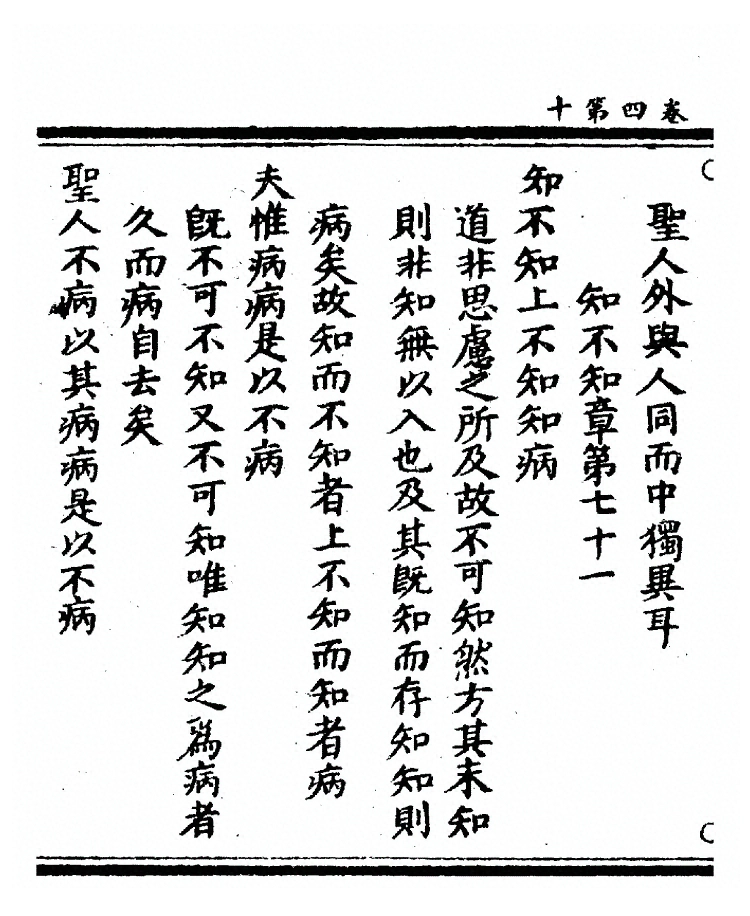 卷四第十
聖人外與人同而中獨異耳
知不知章第七十一
知不知上不知知病
道非思慮之所及故不可知然方其未知
則非知無以入也及其既知而存知知則
病矣故知而不知者上不知而知者病
夫惟病病是以不病
既不可不知又不可知唯知知之爲病者
久而病自去矣
聖人不病以其病病是以不病